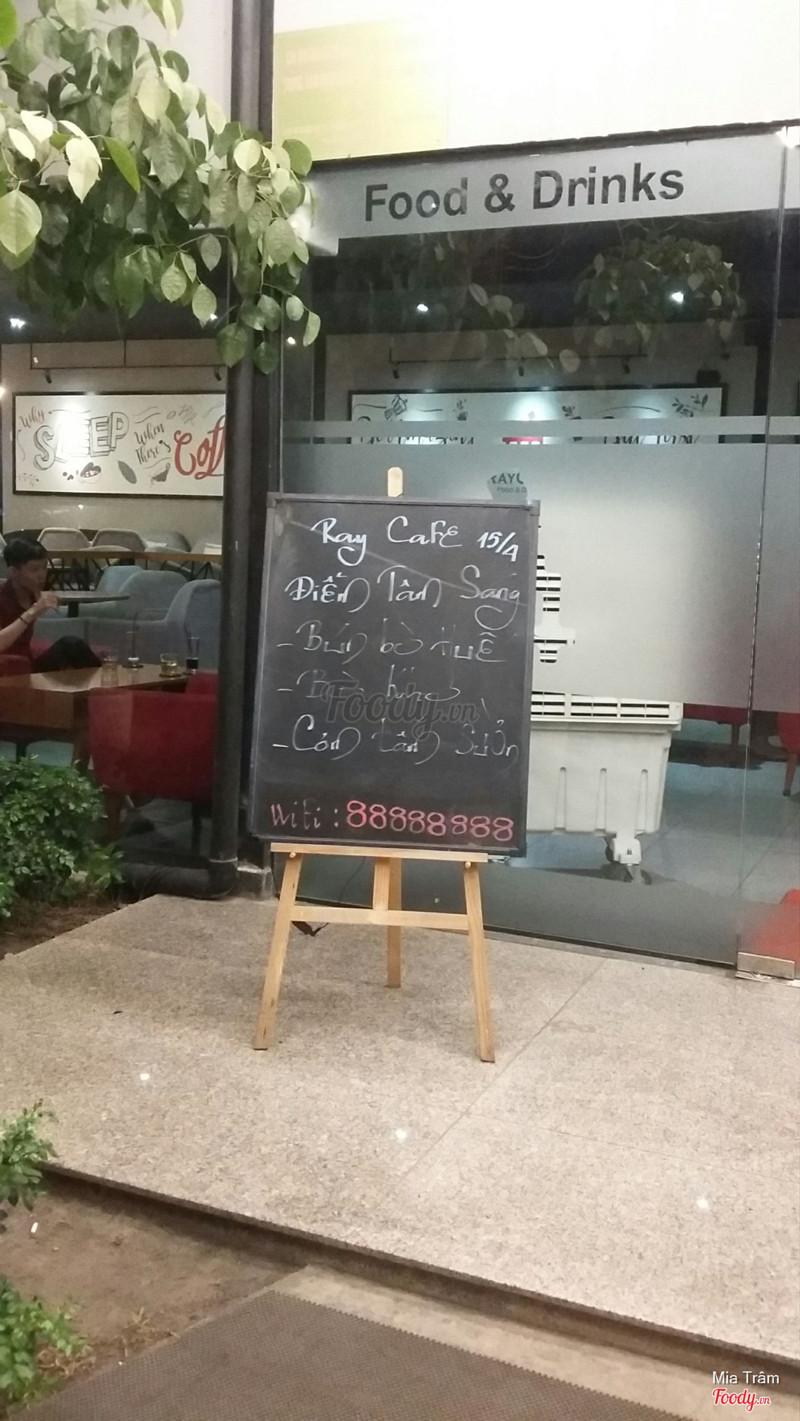 Food & Drinks
Why SLEEP When There's Coff
RAY
Food & D
Ray CaFE 15/4
Điểm Tâm Sáng
- Bún bò Huế
- Cơm tấm Sườn
Wifi : 88888888
Foody.vn
Mia Trâm
Foody.vn